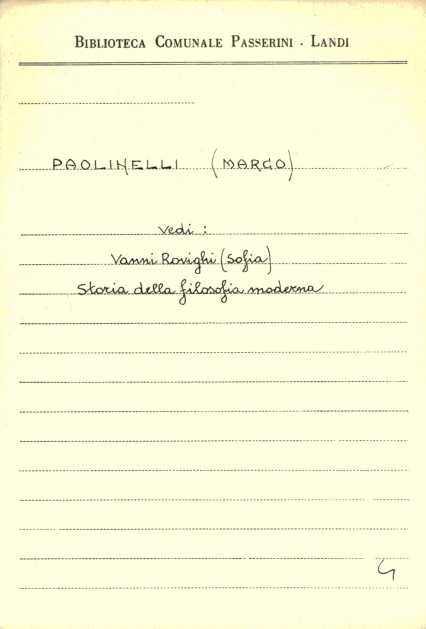 BIBLIOTECA COMUNALE PASSERINI - LANDI
PAOLINELLI (MARCO)
Vedi :
Vanni Rovighi (Sofia)
Storia della filosofia moderna